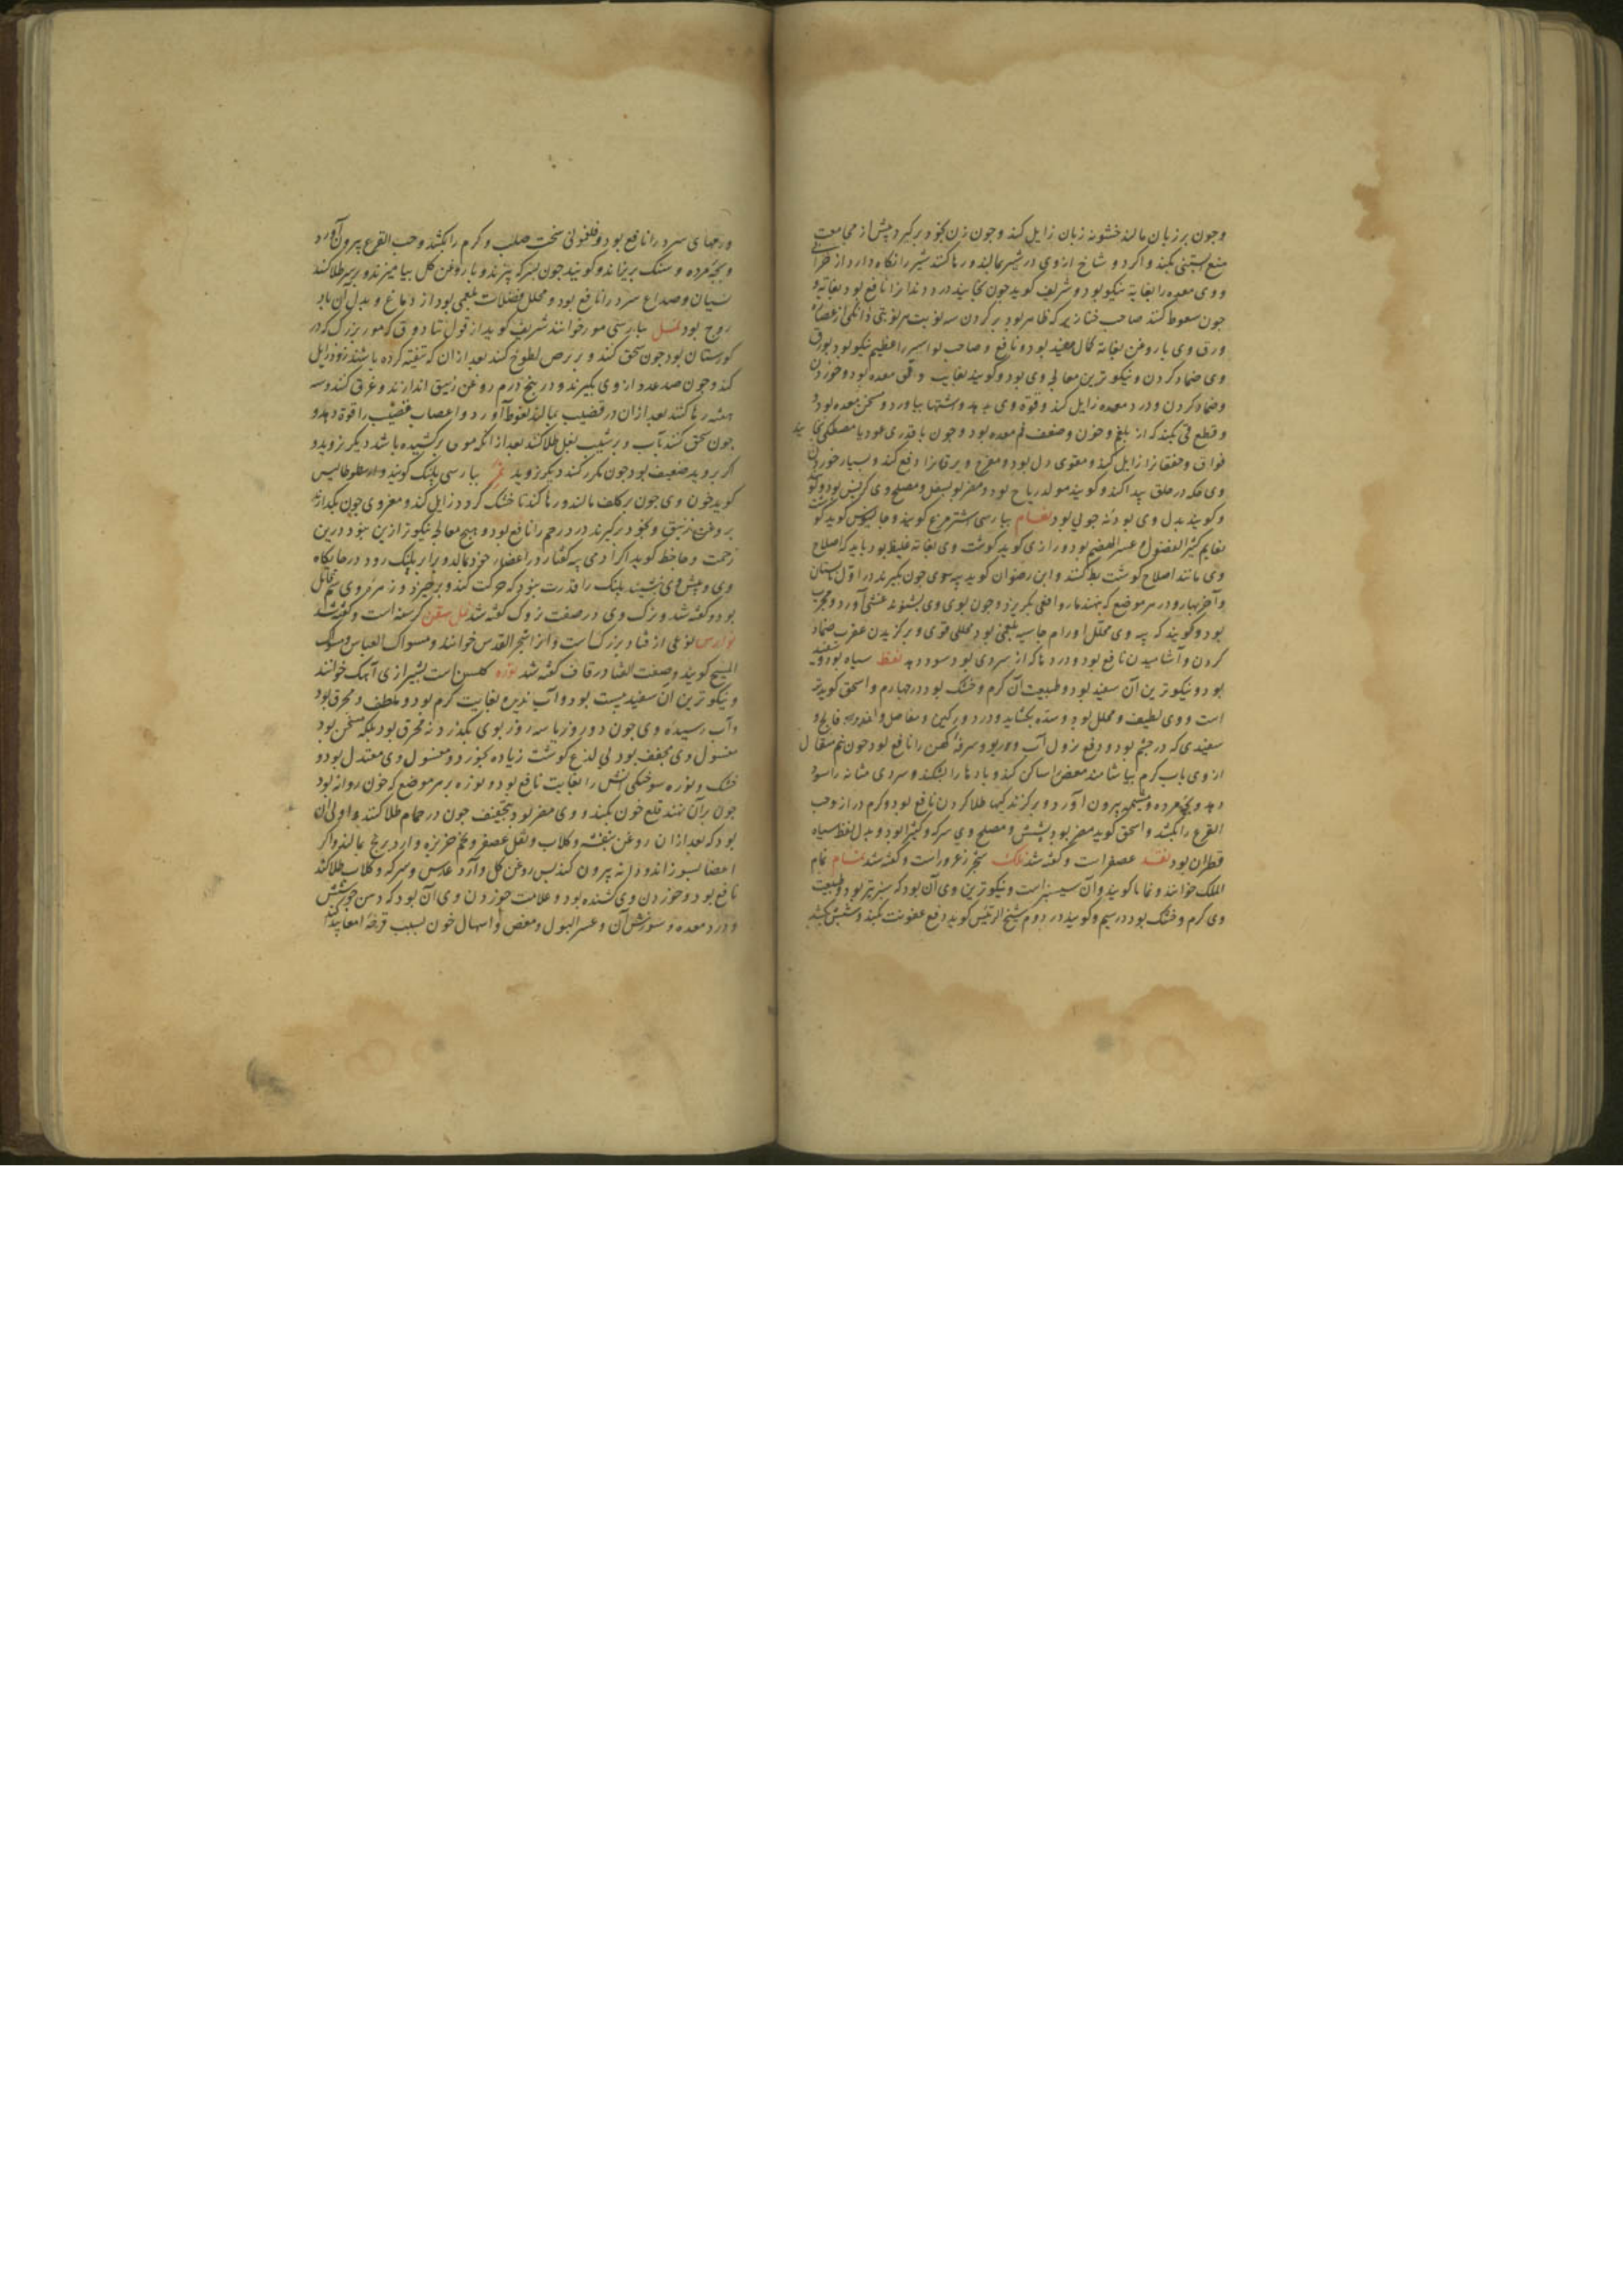 وجون بر زبان مالند خشونه زبان زایل کند وجون زن بخود برکیرد پیش از مجامعت
منع ابستنی بکند واکر دو شاخ از وی در شیر بمالند ورها کنند شیر را نکاه دارد از
ووی معده را بغایة نیکو بود وشریف کوید جون بخایند درد دندانرا نافع بود بغایة و
جون سعوط کنند صاحب خنازیر که ظاهر بود بر کردن سه نوبت هر نوبتی دانکی از عصاره
ورق وی با روغن بغایة کمال مفید بود ونافع وصاحب بواسیر را عظیم نیکو بود بورق
وی ضماد کردن ونیکو ترین معالجه وی بود وکویند بغایت مقوی معده بود وخوردن
وضماد کردن ودرد معده زایل کند وقوة وی بدهد وشتها بیاورد ومسخن معده بود و
وقطع قی بکند که از بلغم وخون وضعف فم معده بود وجون با قدری عود یا مصطکی بخایند
فواق وخفقانرا زایل کند ومقوی دل بود ومفرح ویرقانرا دفع کند وبسیار خوردن
وی حکه در حلق پیدا کند وکویند مولد ریاح بود ومضر بود بسفل ومصلح وی کرفس بود وکو
وکویند بدل وی بودنه جویی بود نعام بپارسی اشترمرغ کویند وجالینوس کوید کوشت
نعایم کثیر الفضول عسر الهضم بود ورازی کوید کوشت وی بغایة غلیظ بود باید که اصلاح
وی مانند اصلاح کوشت بط کنند وابن رضوان کوید پیه وی جون بکیرند در اول تابستان
وآخر بهار ودر هر موضع که بنهند مار وافعی بکریزد وجون بوی وی بشنوند غشی آورد ومجرب
بود وکویند که پیه وی محلل اورام جاسیه بلغمی بود محللی قوی وبر کزیدن عقرب ضماد
کردن وآشامیدن نافع بود ودردها که از سردی بود سود دهد نفط سیاه بود وسفید
بود ونیکو ترین آن سفید بود وطبیعت آن کرم وخشک بود در جهارم واسحق کوید تر
است ووی لطیف ومحلل بود وسده بکشاید ودرد ورکین ومفاصل
سفیدی که در جشم بود ودفع نزول آب وربو وسرفه کهن را نافع بود جون نیم مثقال
از وی باب کرم بیاشامند مغص را ساکن کند وبادها را بشکند وسردی مثانه را سود
دهد وبچه مرده ومشیمه بیرون آورد وبر کزندکیها طلا کردن نافع بود وکرم دراز وحب
القرع را بکشد واسحق کوید مضر بود بشش ومصلح وی سرکه وکثیرا بود وبدل نفط سیاه
قطران بود نقد عصفراست وکفته شد نلک شجر زعرور است وکفته شد نمام نمام
الملک خوانند ونماما کویند وآن سیسنبراست ونیکو ترین وی آن بود که سبزتر بود وطبیعت
وی کرم وخشک بود در سیم وکویند در دوم شیخ الرئیس کوید دفع عفونت بکند وشپش بکشد
ورمهای سرد را نافع بود وفلغمونی سخت صلب وکرم را بکشد وحب القرع بیرون آورد
وبچه مرده وسنک بریزاند وکویند جون بسرکه پزند وبا روغن کل بیامیزند وبر سر طلا کنند
نسیان وصداع سرد را نافع بود ومحلل فضلات بلغمی بود از دماغ وبدل آن باد
روج بود نمل بپارسی مور خوانند شریف کوید از قول ثنادوق که مور بزرک که در
کورستان بود جون سحق کنند وبر برص لطوخ کنند بعد از آن که تنقیه کرده باشند زود زایل
کند وجون صد عدد از وی بکیرند ودر پنج درم روغن زنبق اندازند وغرق کنند وسه
هفته رها کنند بعد از آن در قضیب بمالند نعوظ آورد واعصاب قضیب را قوة دهد و
جون سحق کنند بآب وبر شیب بغل طلا کنند بعد از انکه موی برکشیده باشند دیکر نروید و
اکر بروید ضعیف بود جون مکرر کنند دیکر نروید نمر بپارسی پلنک کویند وارسطوطالیس
کوید خون وی جون بر کلف مالند ورها کنند تا خشک کردد زایل کند ومغز وی جون بکدازند
بروغن زنبق وبخود برکیرند درد رحم را نافع بود وهیج معالجه نیکوتر ازین نبود درین
زحمت وجاحظ کوید اکر آدمی پیه کفتار در اعضاء خود مالد وبرابر پلنک رود در جایکاه
وی وپیش وی نشیند پلنک را قدرت نبود که حرکت کند وبرخیزد وزهره وی سم قاتل
بود وکفته شد ورک وی در صفت زوک کفته شد نمل سقن کرسنه است وکفته شد
نوارس نوعی از قتاد بزرک است وانرا شجر القدس خوانند ومسواک العباس ومسواک
المسیح کویند وصفت القتاد در قاف کفته شد نوره کلس است بشیرازی آهک خوانند
ونیکو ترین آن سفید بیست بود وآب ندیده بغایت کرم بود وملطف ومحرق بود
وآب رسیده وی جون دو روز یا سه روز بوی بکذرد نه محرق بود بلکه مسخن بود
مغسول وی مجفف بود بی لذع کوشت زیاده بخورد ومغسول وی معتدل بود و
خشک ونوره سوختکی آتش را بغایت نافع بود ونوره بر هر موضع که خون روانه بود
جون بر آن نهند قطع خون بکند ووی مضر بود بتجفیف جون در حمام طلا کنند واولی آن
بود که بعد از آن روغن بنفشه وکلاب وثفل عصفر وتخم خربزه وآرد برنج بمالند واکر
اعضا بسوزاند ودانه بیرون کند بس روغن کل وآرد عدس وسرکه وکلاب طلا کنند
نافع بود وخوردن وی کشنده بود وعلامت خوردن وی آن بود که دهن جوشش
ودرد معده وسوزش آن وعسر البول ومغص واسهال خون بسبب قرحهٔ امعا پیدا